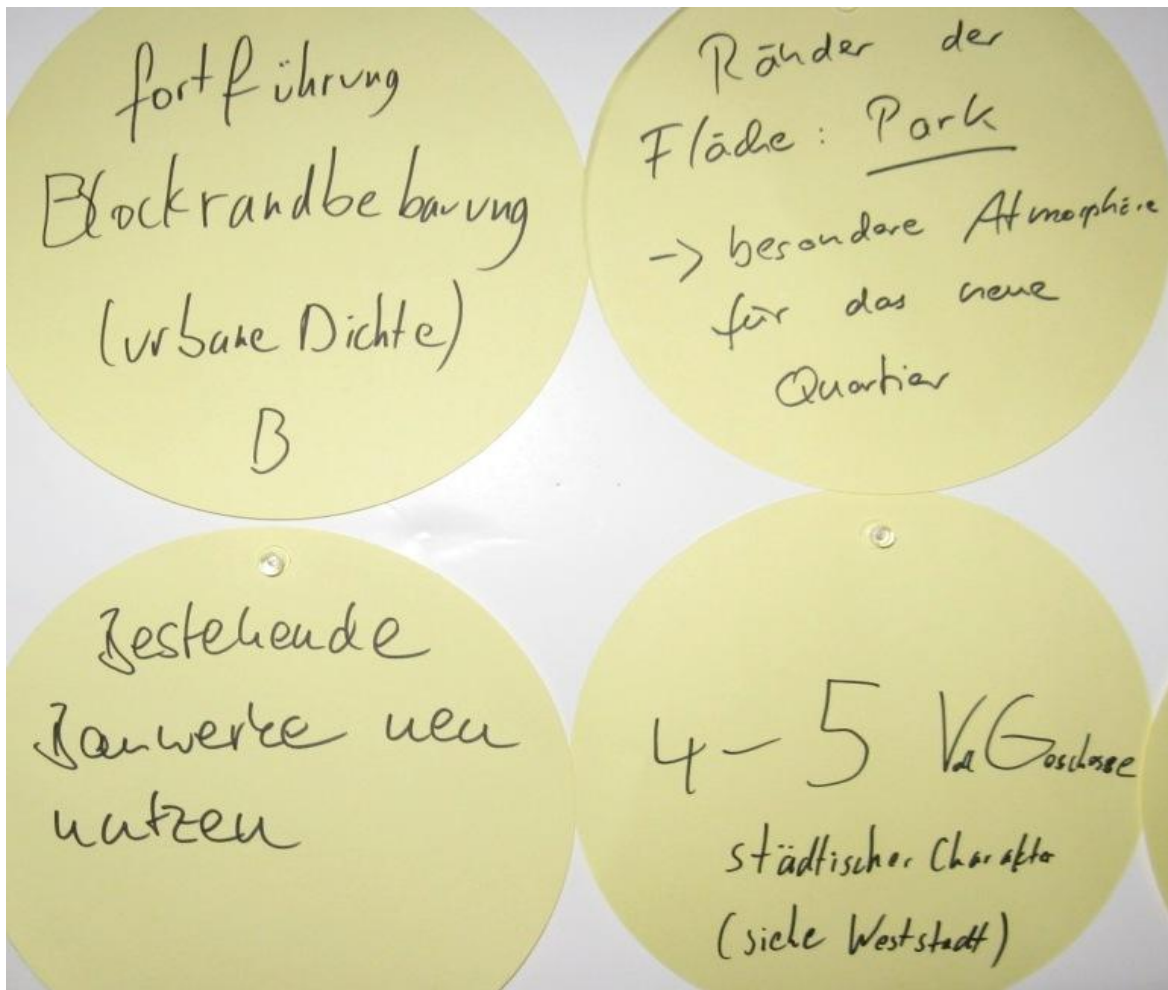 fortführung
Blockrandbebauung
(urbane Dichte)
B
Ränder der
Fläche: Park
-> besondere Atmosphäre
für das neue
Quartier
Bestehende
Bauwerke neu
nutzen
4-5 VollGeschosse
städtischer Charakter
(siehe Weststadt)